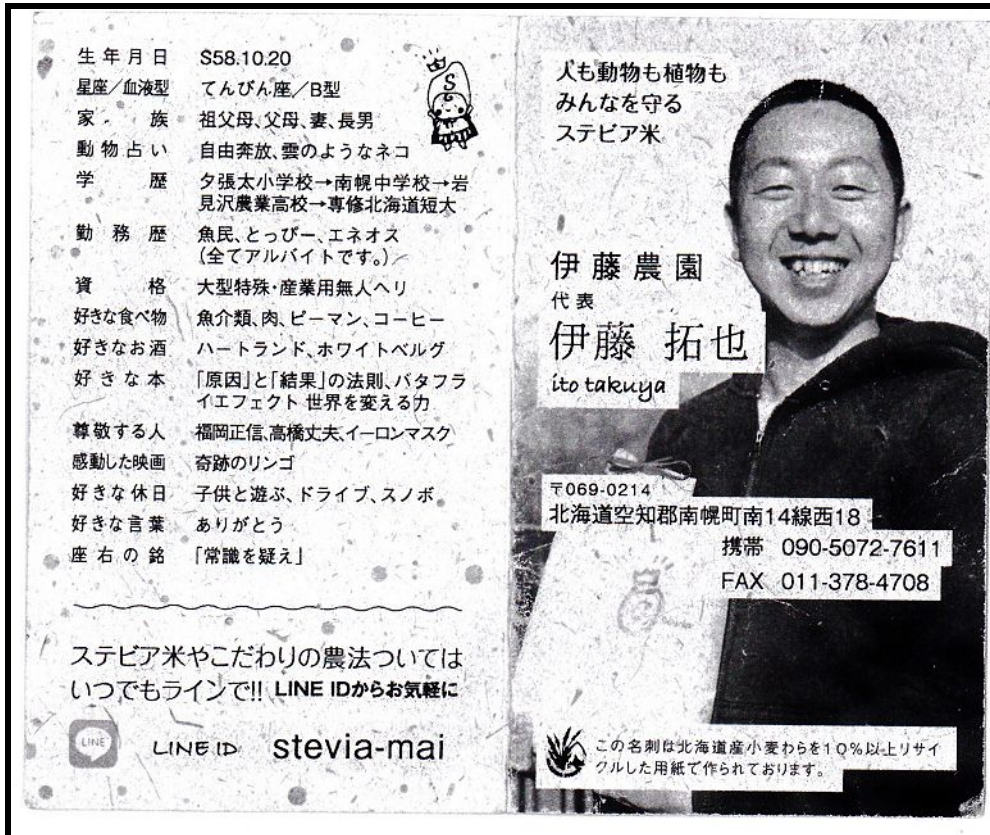 生年月日 S58.10.20
星座／血液型 てんびん座／B型
家族 祖父母、父母、妻、長男
動物占い 自由奔放、雲のようなネコ
学歴 夕張太小学校→南幌中学校→岩
見沢農業高校→専修北海道短大
勤務歴 魚民、とっぴー、エネオス
(全てアルバイトです。)
資格 大型特殊・産業用無人ヘリ
好きな食べ物 魚介類、肉、ピーマン、コーヒー
好きなお酒 ハートランド、ホワイトベルグ
好きな本 「原因」と「結果」の法則、バタフラ
イエフェクト 世界を変える力
尊敬する人 福岡正信、高橋丈夫、イーロンマスク
感動した映画 奇跡のリンゴ
好きな休日 子供と遊ぶ、ドライブ、スノボ
好きな言葉 ありがとう
座右の銘 「常識を疑え」
ステビア米やこだわりの農法ついては
いつでもラインで!! LINE IDからお気軽に
LINE
LINE ID stevia-mai
S
人も動物も植物も
みんなを守る
ステビア米
伊藤農園
代表
伊藤 拓也
ito takuya
〒069-0214
北海道空知郡南幌町南14線西18
携帯 090-5072-7611
FAX 011-378-4708
この名刺は北海道産小麦わらを10%以上リサイ
クルした用紙で作られております。